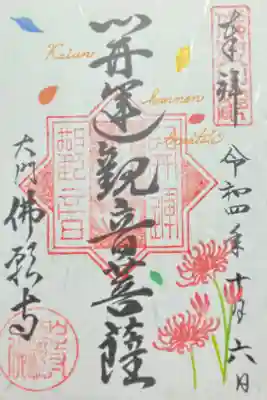 奉拝
令和四年十月六日
開運観音菩薩
Kaiun
kannon
bosatsu
開運
観音
大門佛願寺